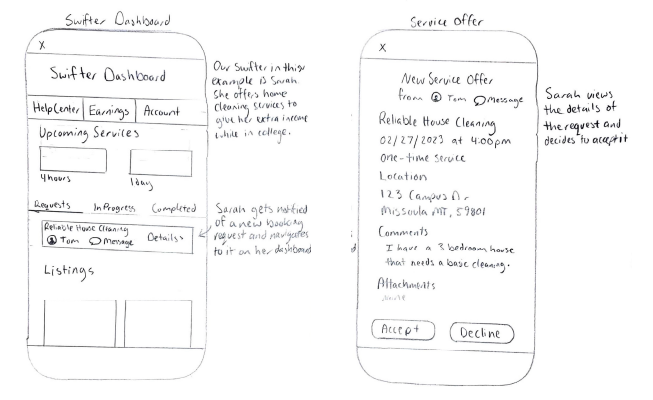 Swifter Dashboard
X
Swifter Dashboard
Help Center
Earnings
Account
Upcoming Services
4 hours
1 day
Requests
In Progress
Completed
Reliable House Cleaning
Tom
Message
Details >
Listings
Our Swifter in this
example is Sarah
She offers home
cleaning services to
give her extra income
while in college.
Sarah gets notified
of a new booking
request and navigates
to it on her dashboard
Service Offer
X
New Service Offer
from Tom Message
Reliable House Cleaning
02/27/2023 at 4:00pm
One-time service
Location
123 Campus Dr
Missoula MT, 59801
Comments
I have a 3 bedroom house
that needs a base cleaning.
Attachments
Accept
Decline
Sarah views
the details of
the request and
decides to accept it